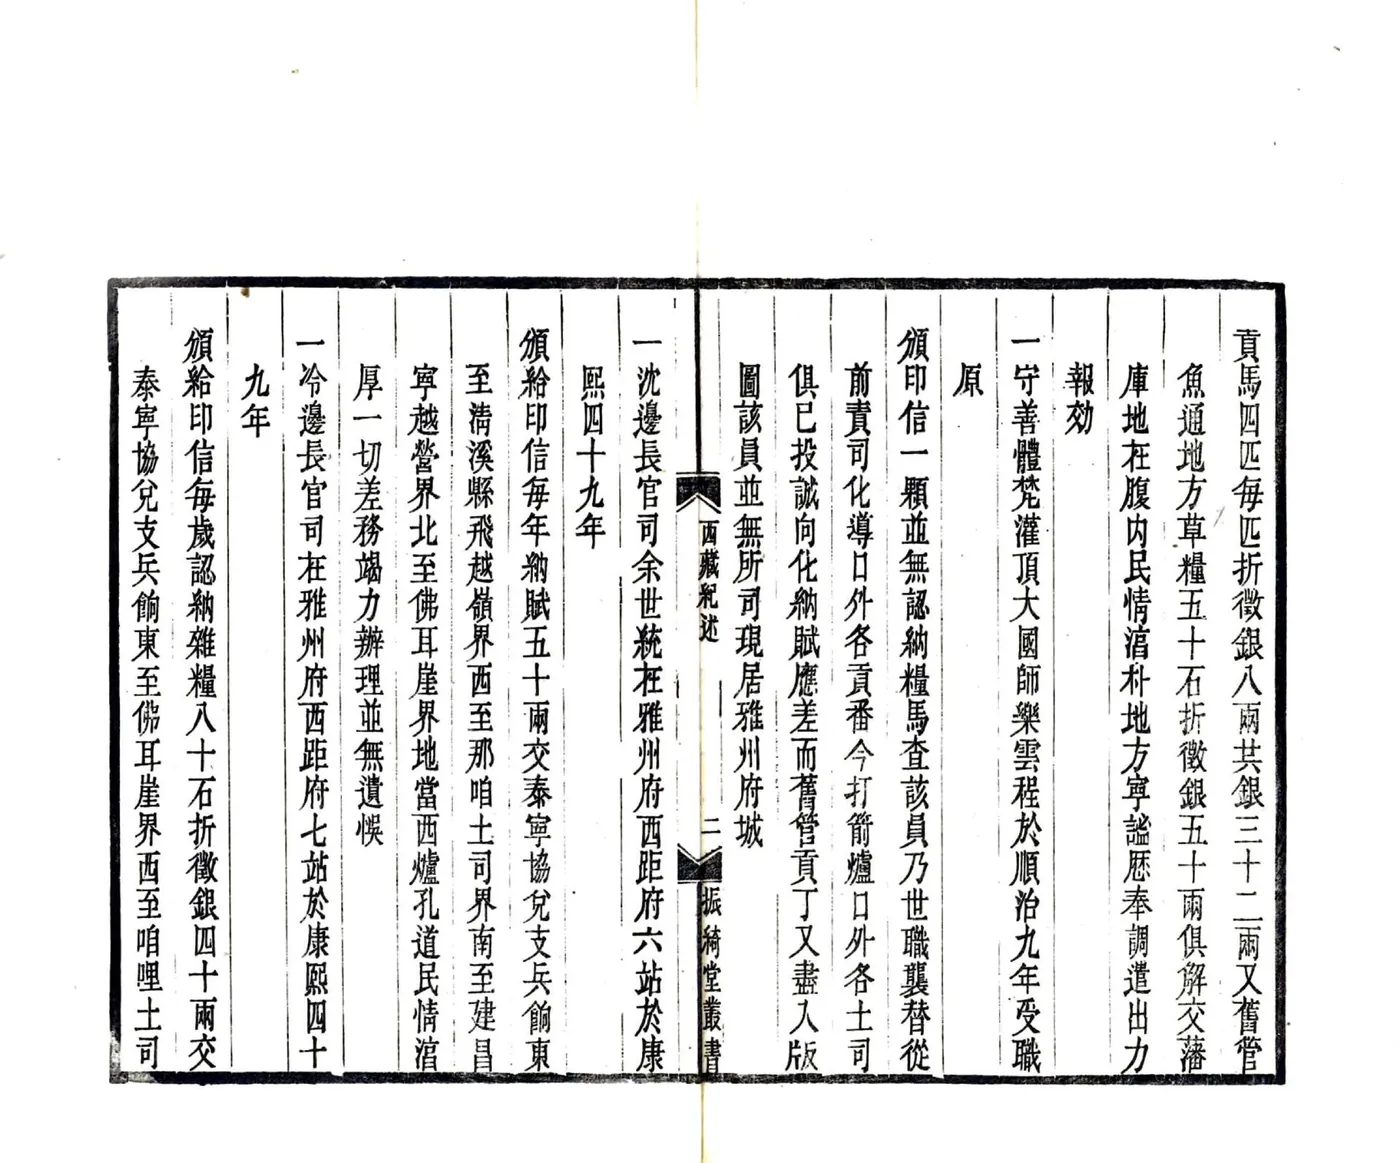 貢馬四匹每匹折徵銀八兩共銀三十二兩又舊管
魚通地方草糧五十石折徵銀五十兩俱解交藩
庫地在腹内民情淳朴地方寧謐歷奉調遣出力
報効
一守善體梵灌頂大國師樂雲程於順治九年受職
原
頒印信一顆並無認納糧馬查該員乃世職襲替從
前責司化導口外各貢番今打箭爐口外各土司
俱已投誠向化納賦應差而舊管貢丁又盡入版
圖該員並無所司現居雅州府城
西藏紀述
二
振綺堂叢書
一沈邊長官司余世統在雅州府西距府六站於康
熙四十九年
頒給印信每年納賦五十兩交泰寧協兌支兵餉東
至淸溪縣飛越嶺界西至那咱土司界南至建昌
寧越營界北至佛耳崖界地當西爐孔道民情淳
厚一切差務竭力辦理並無遺悞
一冷邊長官司在雅州府西距府七站於康熙四十
九年
頒給印信每歲認納雜糧八十石折徵銀四十兩交
泰寧協兌支兵餉東至佛耳崖界西至咱哩土司